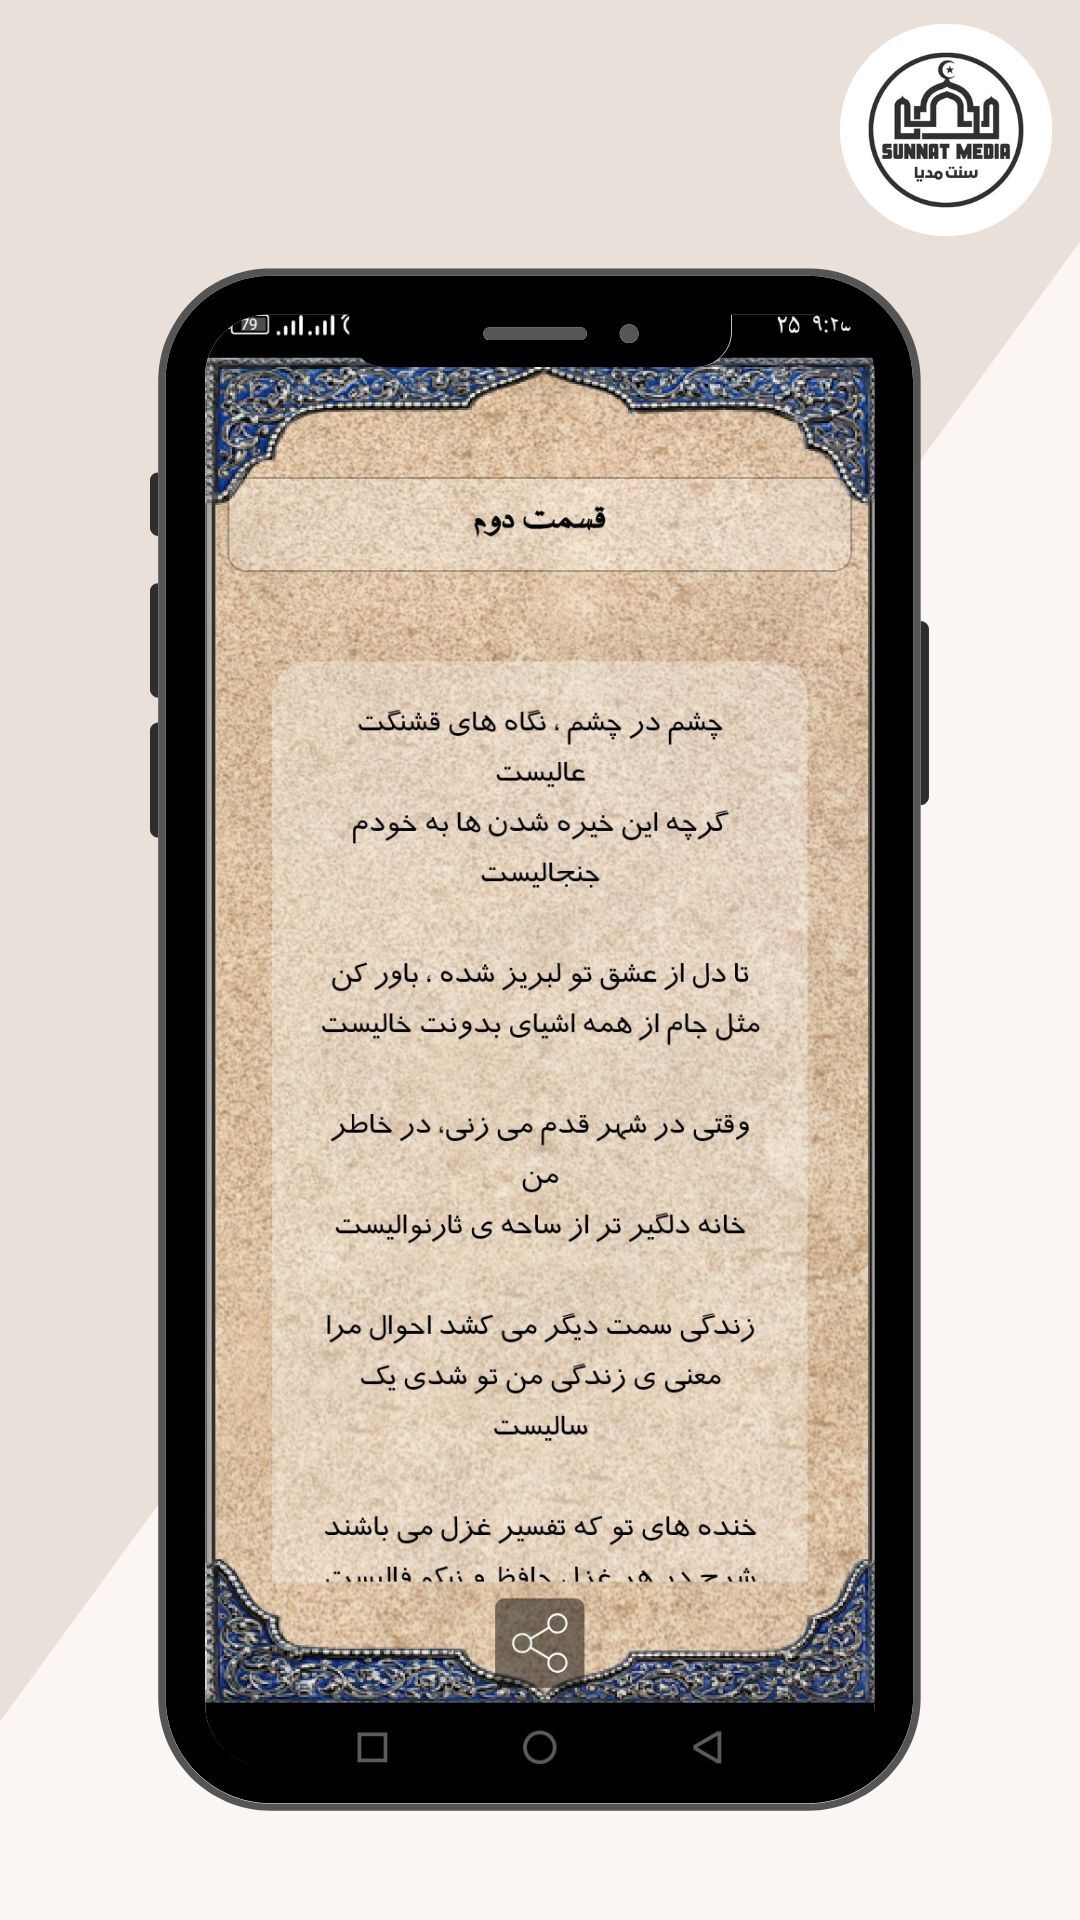 SUNNAT MEDIA
سنت مدیا
79
۲۵
قسمت دوم
چشم در چشم ، نگاه های قشنگت
عالیست
گرچه این خیره شدن ها به خودم
جنجالیست
تا دل از عشق تو لبریز شده ، باور کن
مثل جام از همه اشیای بدونت خالیست
وقتی در شهر قدم می زنی، در خاطر
من
خانه دلگیر تر از ساحه ی ثارنوالیست
زندگی سمت دیگر می کشد احوال مرا
معنی ی زندگی من تو شدی یک
سالیست
خنده های تو که تفسیر غزل می باشند
شرح در هر غزل حافظ و نیکو فالیست